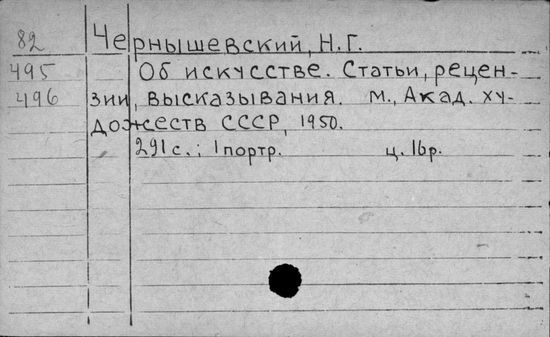 82 Чернышевский, Н.Г.
495 Об искусстве. Статьи, рецен-
496 зии, высказывания. М., Акад. ху-
дожеств СССР, 1950.
291 с.; 1 портр. ц. 16р.